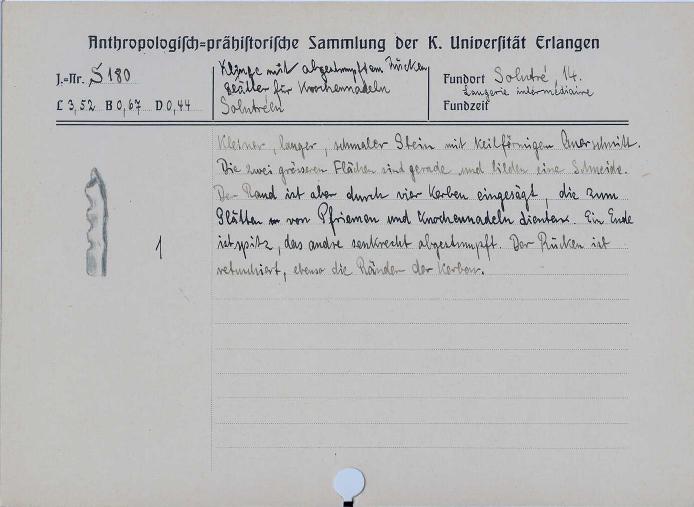 Anthropologisch-prähistorische Sammlung der K. Universität Erlangen
J.-Nr. S 180
L 3,52 B 0,67 D 0,44
Klinge mit abgestumpftem Rücken
Glätter für Knochennadeln
Solutréen
Fundort Solutré, 14.
Laugerie intermédiaire
Fundzeit
Kleiner, langer, schmaler Stein mit keilförmigem Querschnitt.
Die zwei grösseren Flächen sind gerade und bilden eine Schneide.
Der Rand ist aber durch vier Kerben eingesägt, die zum
Glätten von Pfriemen und Knochennadeln dienten. Ein Ende
ist spitz, das andre senkrecht abgestumpft. Der Rücken ist
retuschiert, ebenso die Ränder der Kerben.
1